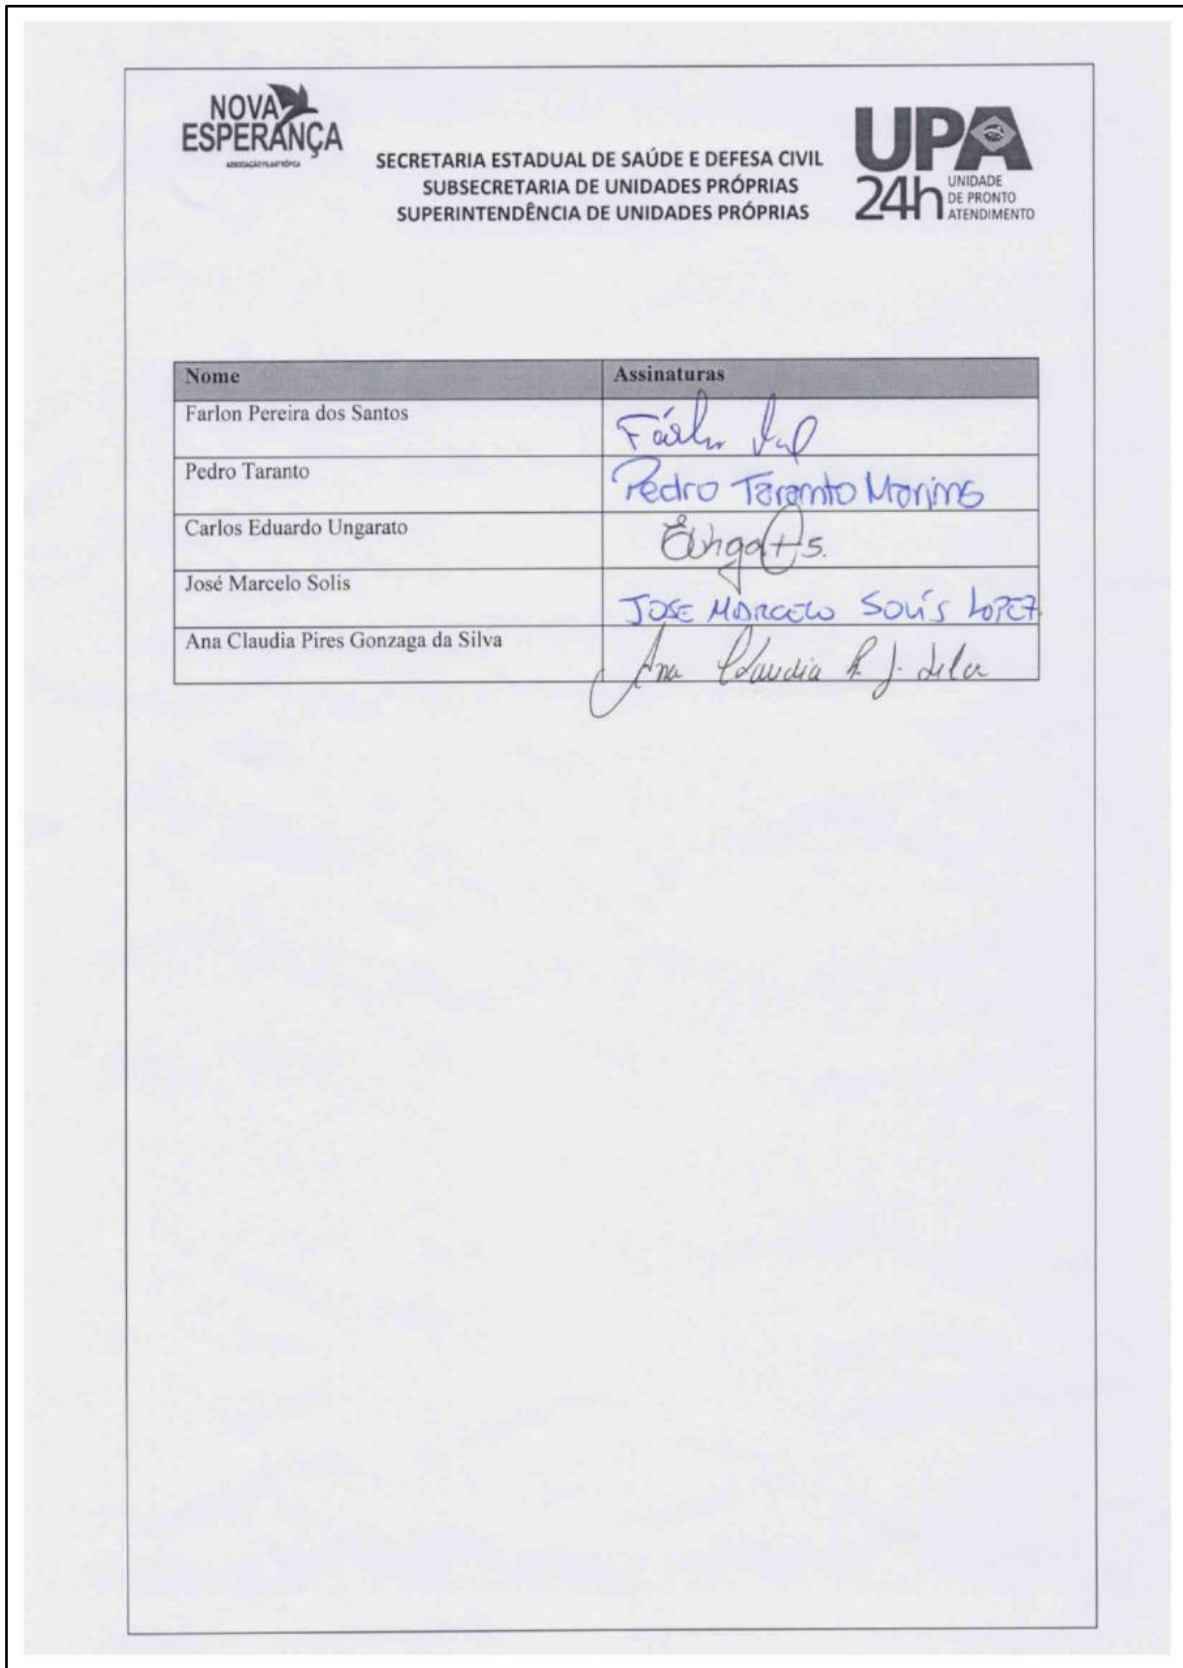 NOVA
ESPERANÇA
ASSOCIAÇÃO FILANTRÓPICA
SECRETARIA ESTADUAL DE SAÚDE E DEFESA CIVIL
SUBSECRETARIA DE UNIDADES PRÓPRIAS
SUPERINTENDÊNCIA DE UNIDADES PRÓPRIAS
UPA
24h
UNIDADE
DE PRONTO
ATENDIMENTO
Nome Assinaturas
Farlon Pereira dos Santos
Pedro Taranto Pedro Taranto
Carlos Eduardo Ungarato
José Marcelo Solis JOSE MARCELO SOLÍS LOPEZ
Ana Claudia Pires Gonzaga da Silva Ana Claudia